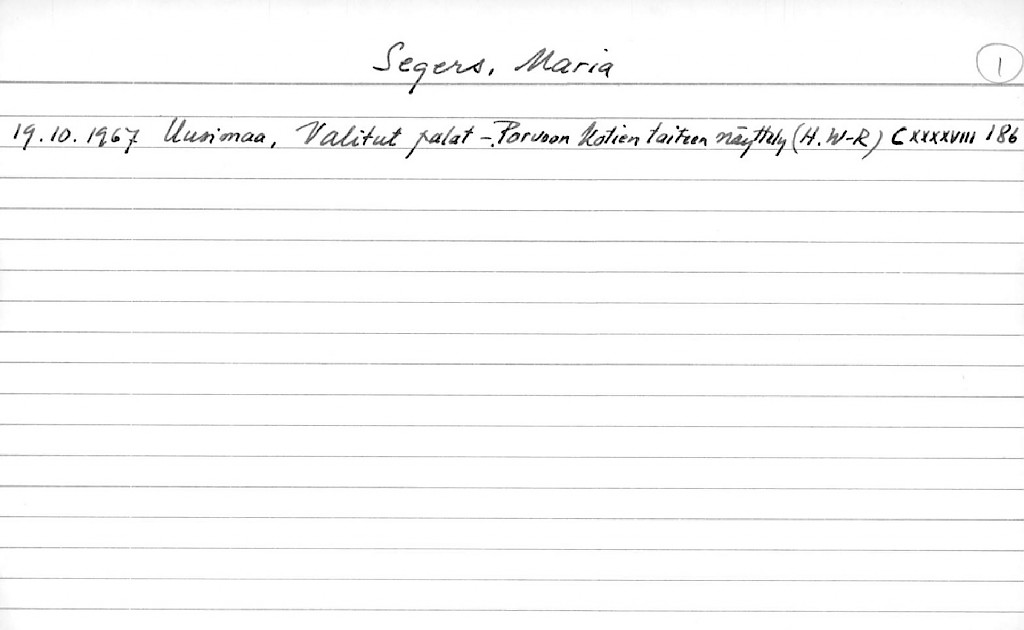 Segers, Maria
1
19.10.1967 Uusimaa, Valitut palat - Porvoon Kotien taiteen näyttely (H. W-R) CXXXXVIII 186